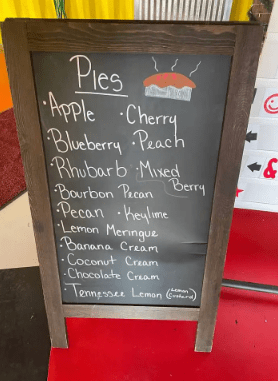 Pies
·Apple ·Cherry
·Blueberry ·Peach
·Rhubarb ·Mixed Berry
·Bourbon Pecan
·Pecan ·Keylime
·Lemon Meringue
·Banana Cream
·Coconut Cream
·Chocolate Cream
·Tennessee Lemon (Lemon Custard)
&